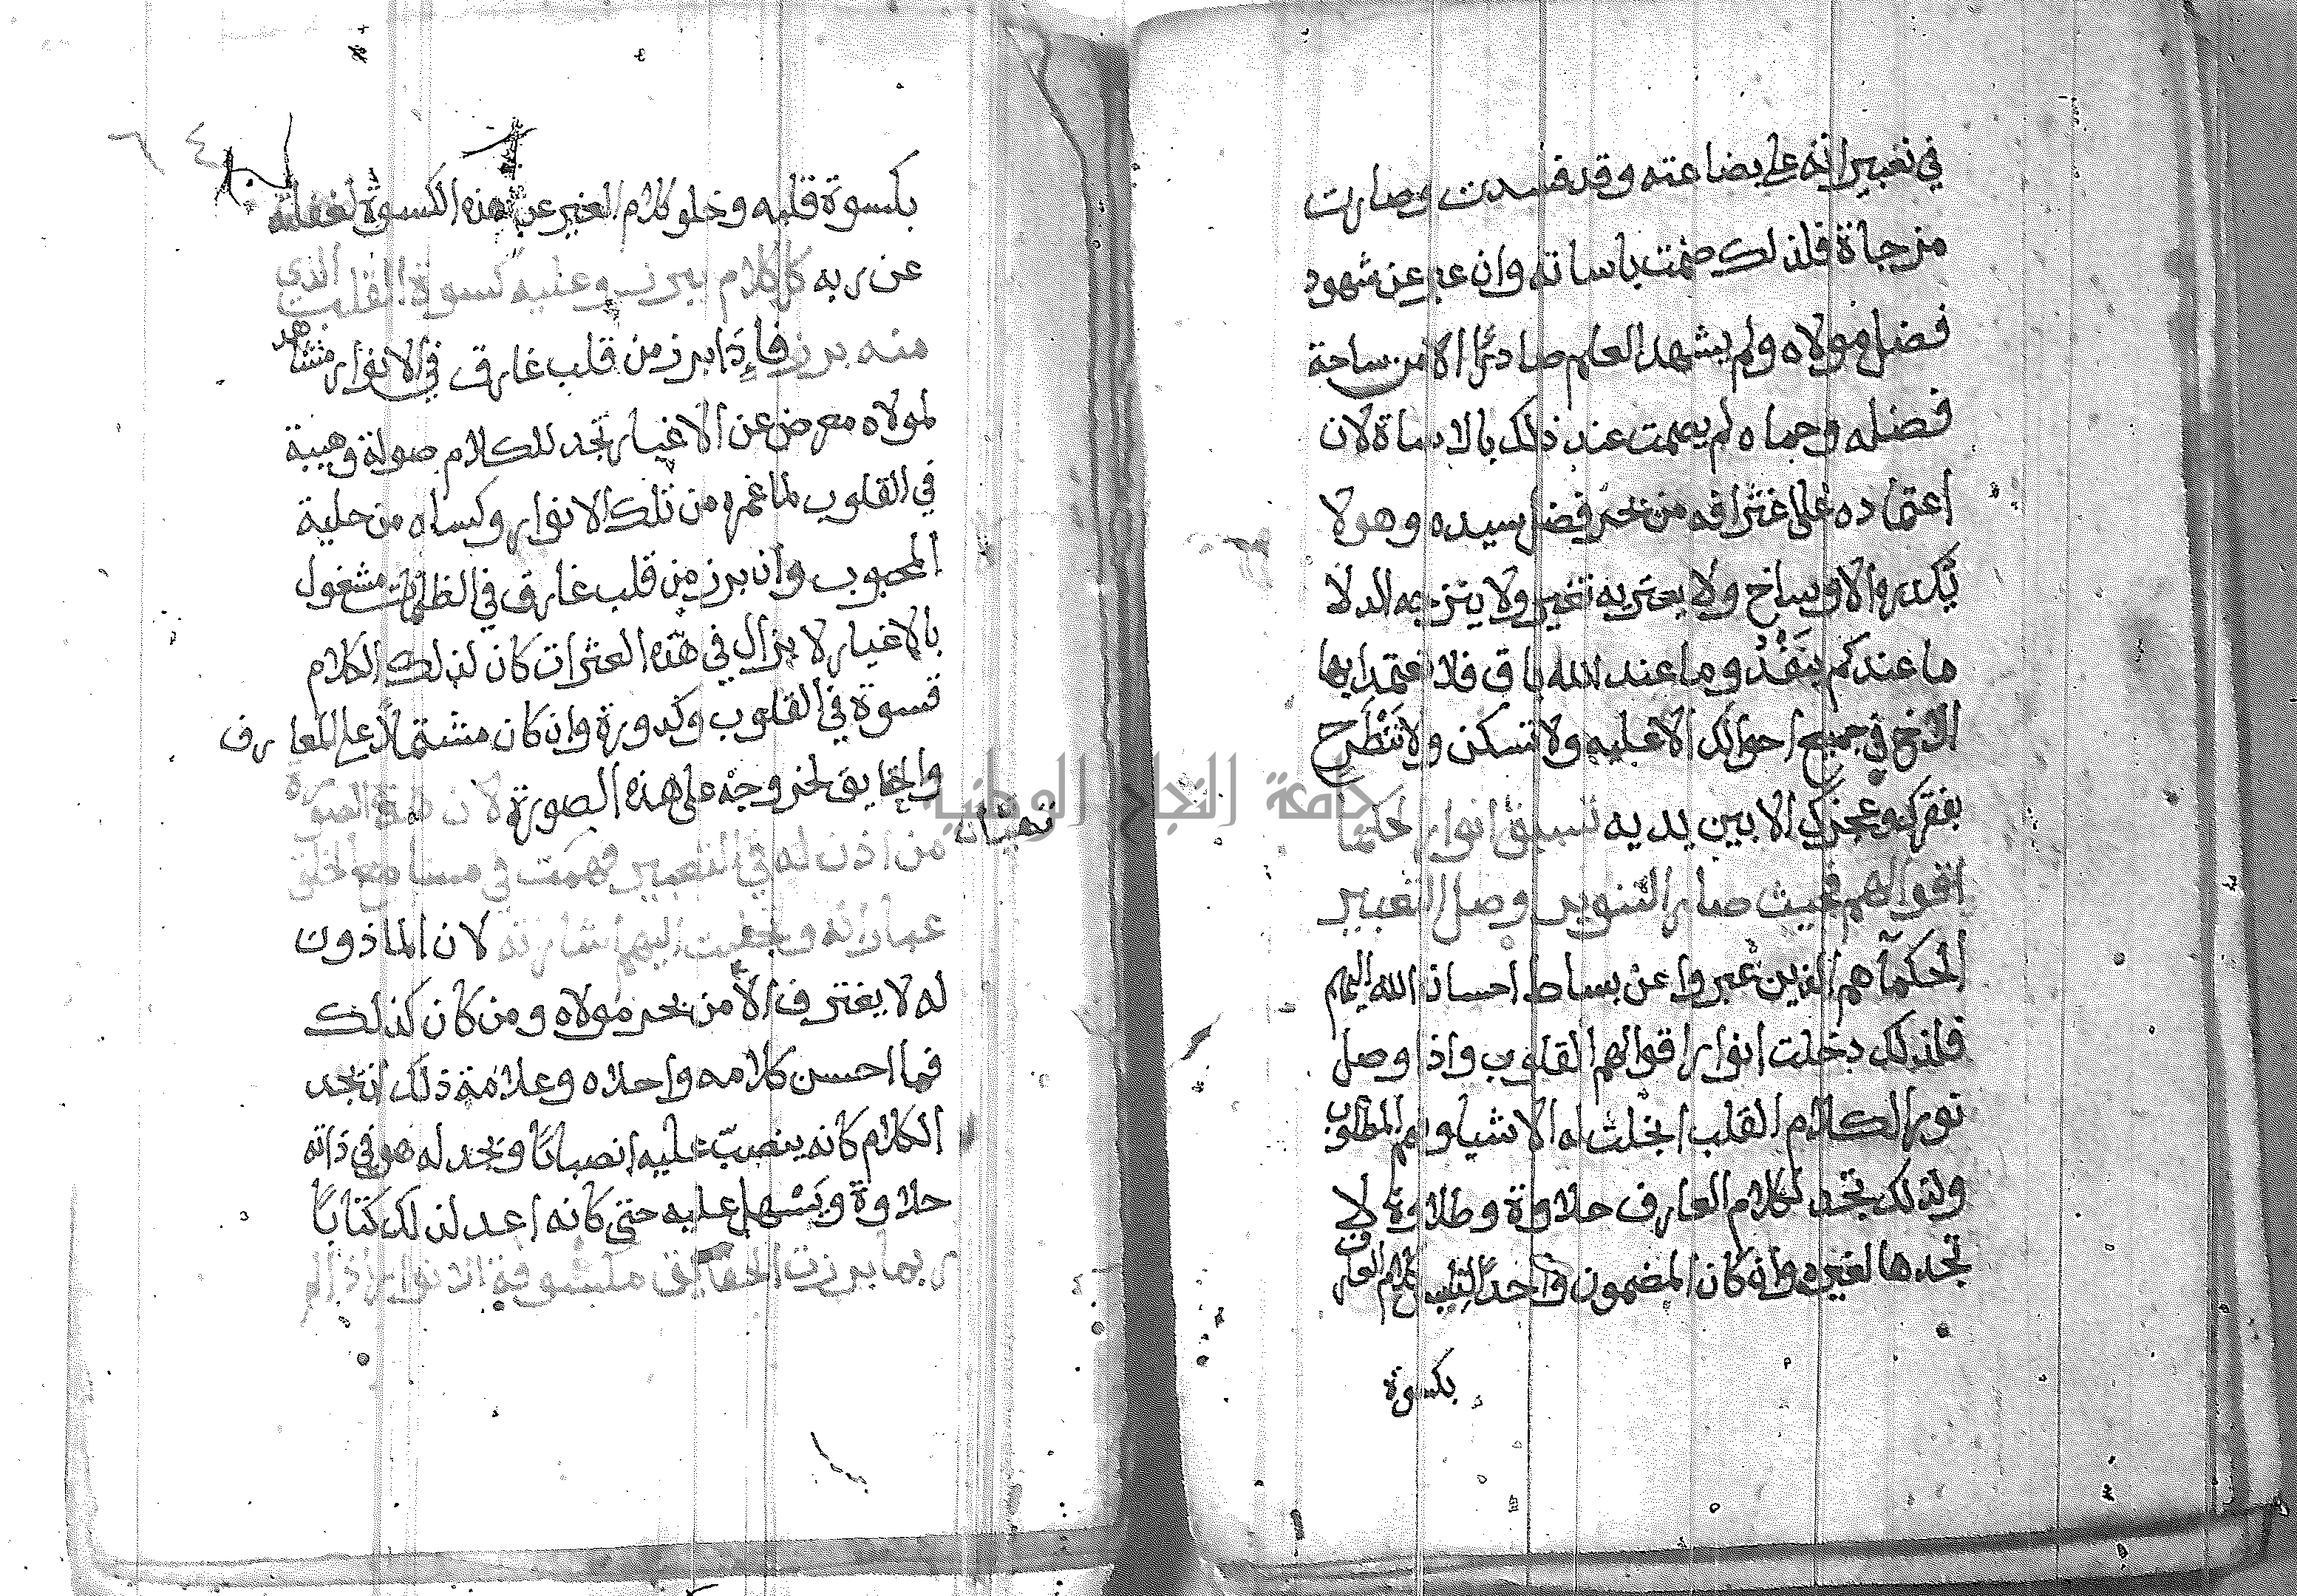 في تعبيراته على بضاعته وقد فسدت وصارت
مزجاة فلذلك صمت باساته وان عبر عن شهود
فضل مولاه ولم يشهد العلم صادرًا الا من ساحة
فضله وحماه لم يصمت عند ذلك بالاساة لان
اعتماده على اغترافه من بحر فضل سيده وهو لا
يكدره الاوساخ ولا يعتريه تغير ولا ينزحه الدلا
ما عندكم ينفد وما عند الله باق فلا تعتمد ايها
الاخ في جميع احوالك الا عليه ولا تسكن ولا تنطرح
بفقرك وعجزك الا بين يديه تسبق انوار الحكما
اقوالهم فحيث صار التنوير وصل التعبير
الحكمآ هم الذين عبروا عن بساط احسان الله اليهم
فلذلك دخلت انوار اقوالهم القلوب واذا وصل
نور الكلام القلب انجلت له الاشيا وفهم المطلوب
ولذلك تجد لكلام العارف حلاوة وطلاوة لا
تجدها لغيره وان كان المضمون واحدًا لتلبس كلام العارف
بكسوة
بكسوة قلبه وخلو كلام الغير عن هذه الكسوة لغفلته
عن ربه كل كلام يبرز وعليه كسوة القلب الذي
منه برز فإذا برز من قلب غارق في الانوار مشاهد
لمولاه معرض عن الاغيار تجد للكلام صولة وهيبة
في القلوب لما غمره من تلك الانوار وكساه من حلية
المحبوب وان برز من قلب غارق في الظلمات مشغول
بالاغيار لا يزال في هذه العثرات كان لذلك الكلام
قسوة في القلوب وكدورة وان كان مشتملًا على المعارف
والحقايق لخروجه على هذه الصورة لان هذه الصورة
تهيأت
من اذن له في التعبير فهمت في مسامع الخلق
عباراته وجليت اليهم اشارته لان الماذون
له لا يغترف الا من بحر مولاه ومن كان كذلك
فما احسن كلامه واحلاه وعلامة ذلك ان تجد
الكلام كانه ينصب عليه انصبابًا وتجد له هو في ذاته
حلاوة ويسهل عليه حتى كانه اعد لذلك كتابًا
ربما برزت الحقايق مكسوفة الانوار اذا لم
جامعة النجاح الوطنية